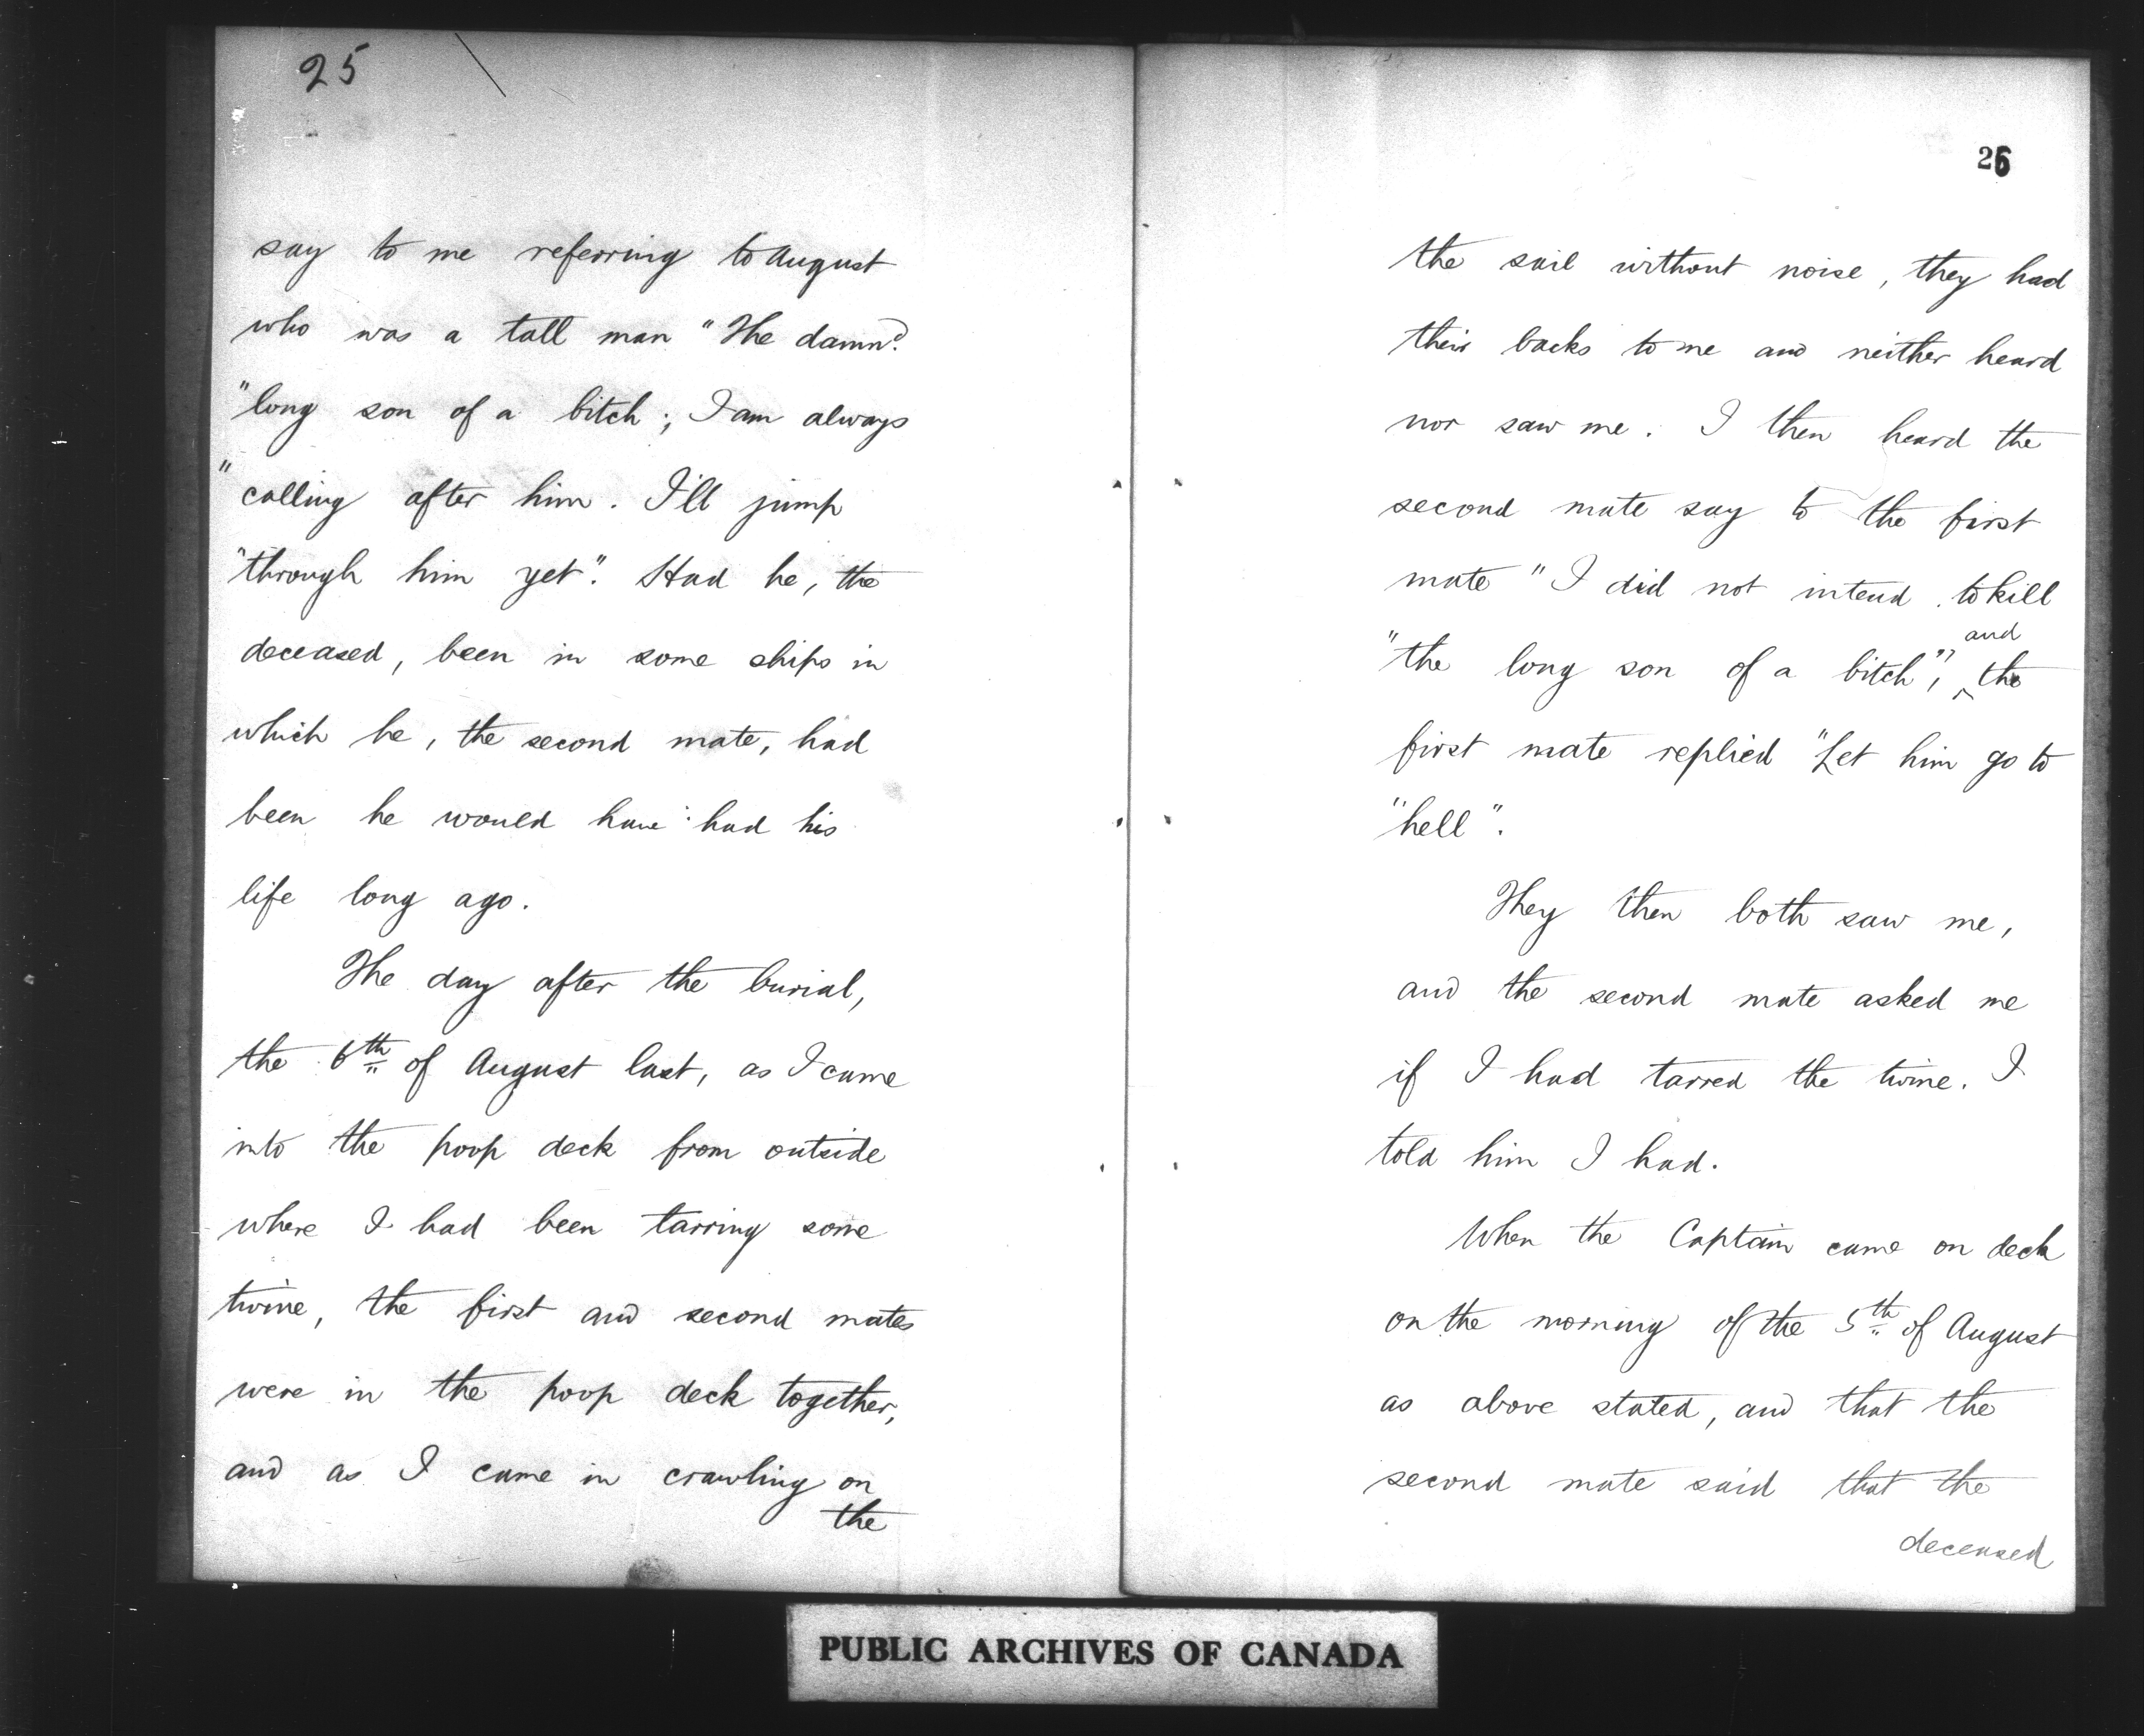 25
say to me referring to August
who was a tall man "The damnd.
"long son of a bitch; I am always
"calling after him. I'll jump
"through him yet". Had he, the
deceased, been in some ships in
which he, the second mate, had
been he would have had his
life long ago.
The day after the burial,
the 6th of August last, as I came
into the poop deck from outside
where I had been tarring some
twine, the first and second mates
were in the poop deck together,
and as I came in crawling on
the
26
the sail without noise, they had
their backs to me and neither heard
nor saw me. I then heard the
second mate say to the first
mate "I did not intend to kill
"the long son of a bitch", and the
first mate replied "Let him go to
"hell".
They then both saw me,
and the second mate asked me
if I had tarred the twine. I
told him I had.
When the Captain came on deck
on the morning of the 5th of August
as above stated, and that the
second mate said that the
deceased
PUBLIC ARCHIVES OF CANADA